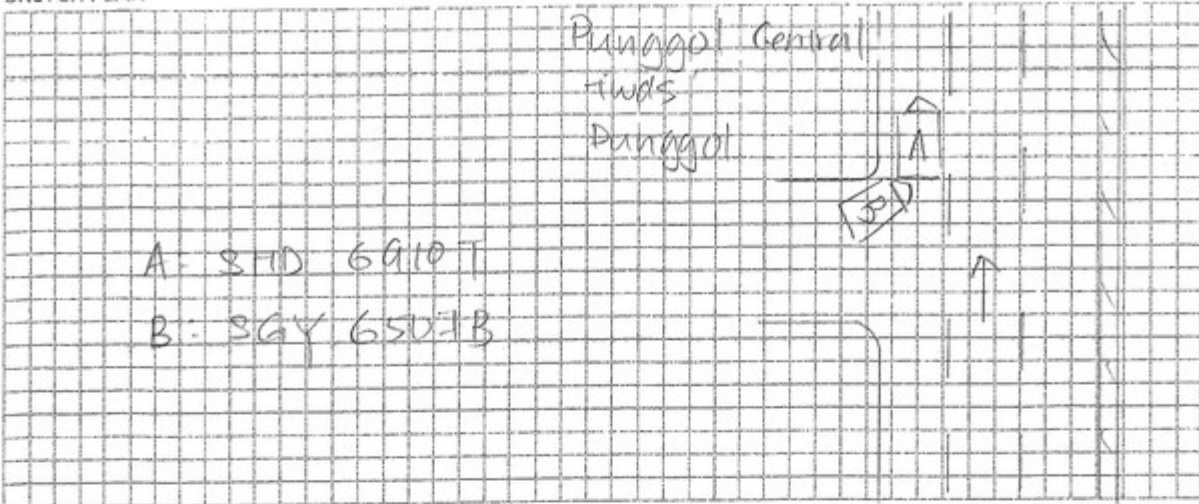 Punggol Central
twds
Punggol
A
B
A - SHD 6910T
B: SGY 6507B